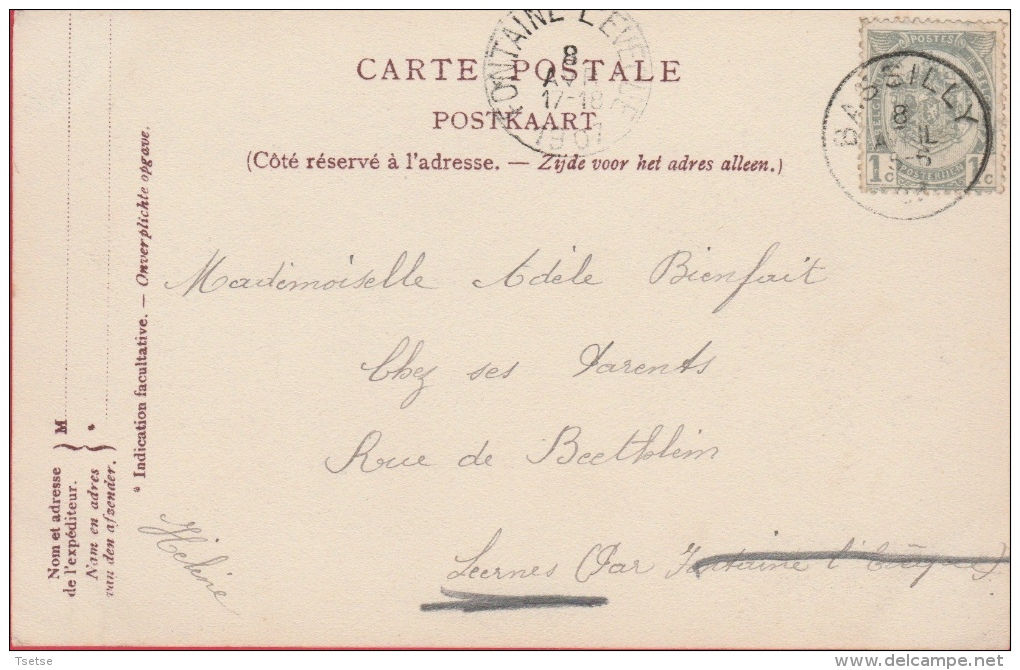 CARTE POSTALE
POSTKAART
(Côté réservé à l'adresse. — Zijde voor het adres alleen.)
FONTAINE L'EVEQUE
8
17-18
1907
POSTES
BASSILLY
8
AVRIL
5-6
07
1c 1c
POSTERIJEN
Mademoiselle Adèle Bienfait
Chez ses Parents
Rue de Beethléim
Leernes (Par Fontaine l'Evêque)
Hélène
* Indication facultative. — Onverplichte opgave.
M
*
Nom et adresse
de l'expéditeur.
Nam en adres
van den afzender.
Tsetse
www.delcampe.net